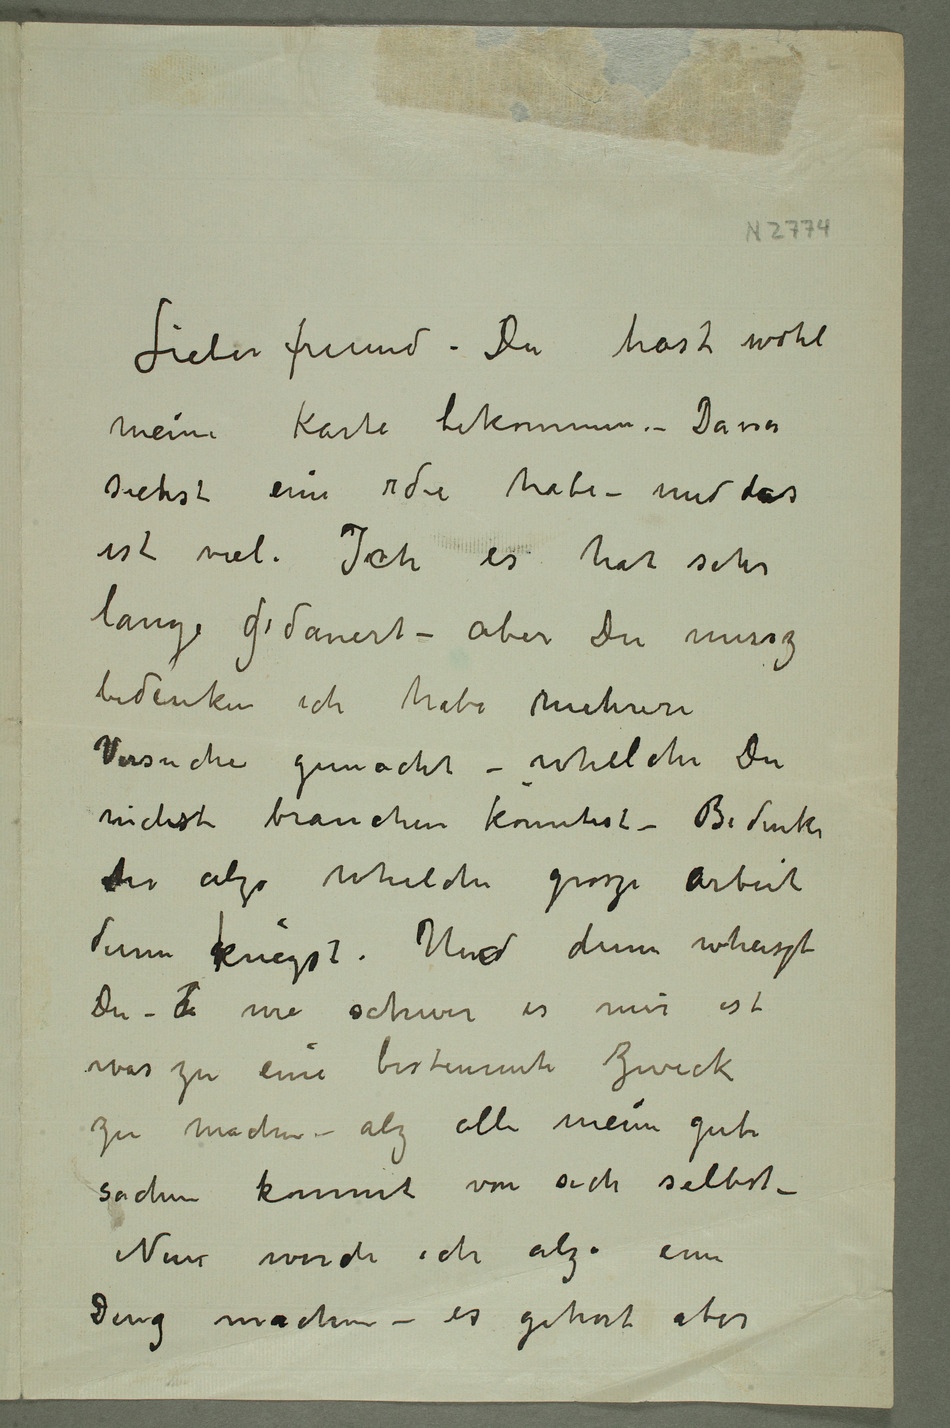 N 2774
Lieber freund – Du hast wohl
meine Karte bekommen. – Davon
siehst eine Idee habe – und das
ist viel. Ich es hat sehr
lange gedauert – aber Du mussz
bedenken ich habe mehrere
Versuche gemacht – whelche Du
nichst brauchen könntest – Bedenke
alzo whelche grosze arbeit
denn kriegst. Und denn wheiszt
Du – wie schwer es mir ist
was zu eine bestemmte Zweck
zu machen – alz alle meine gute
sachen kommt von sich selbst –
Nun werde ich alzo eine
Ding machen – es gehört aber